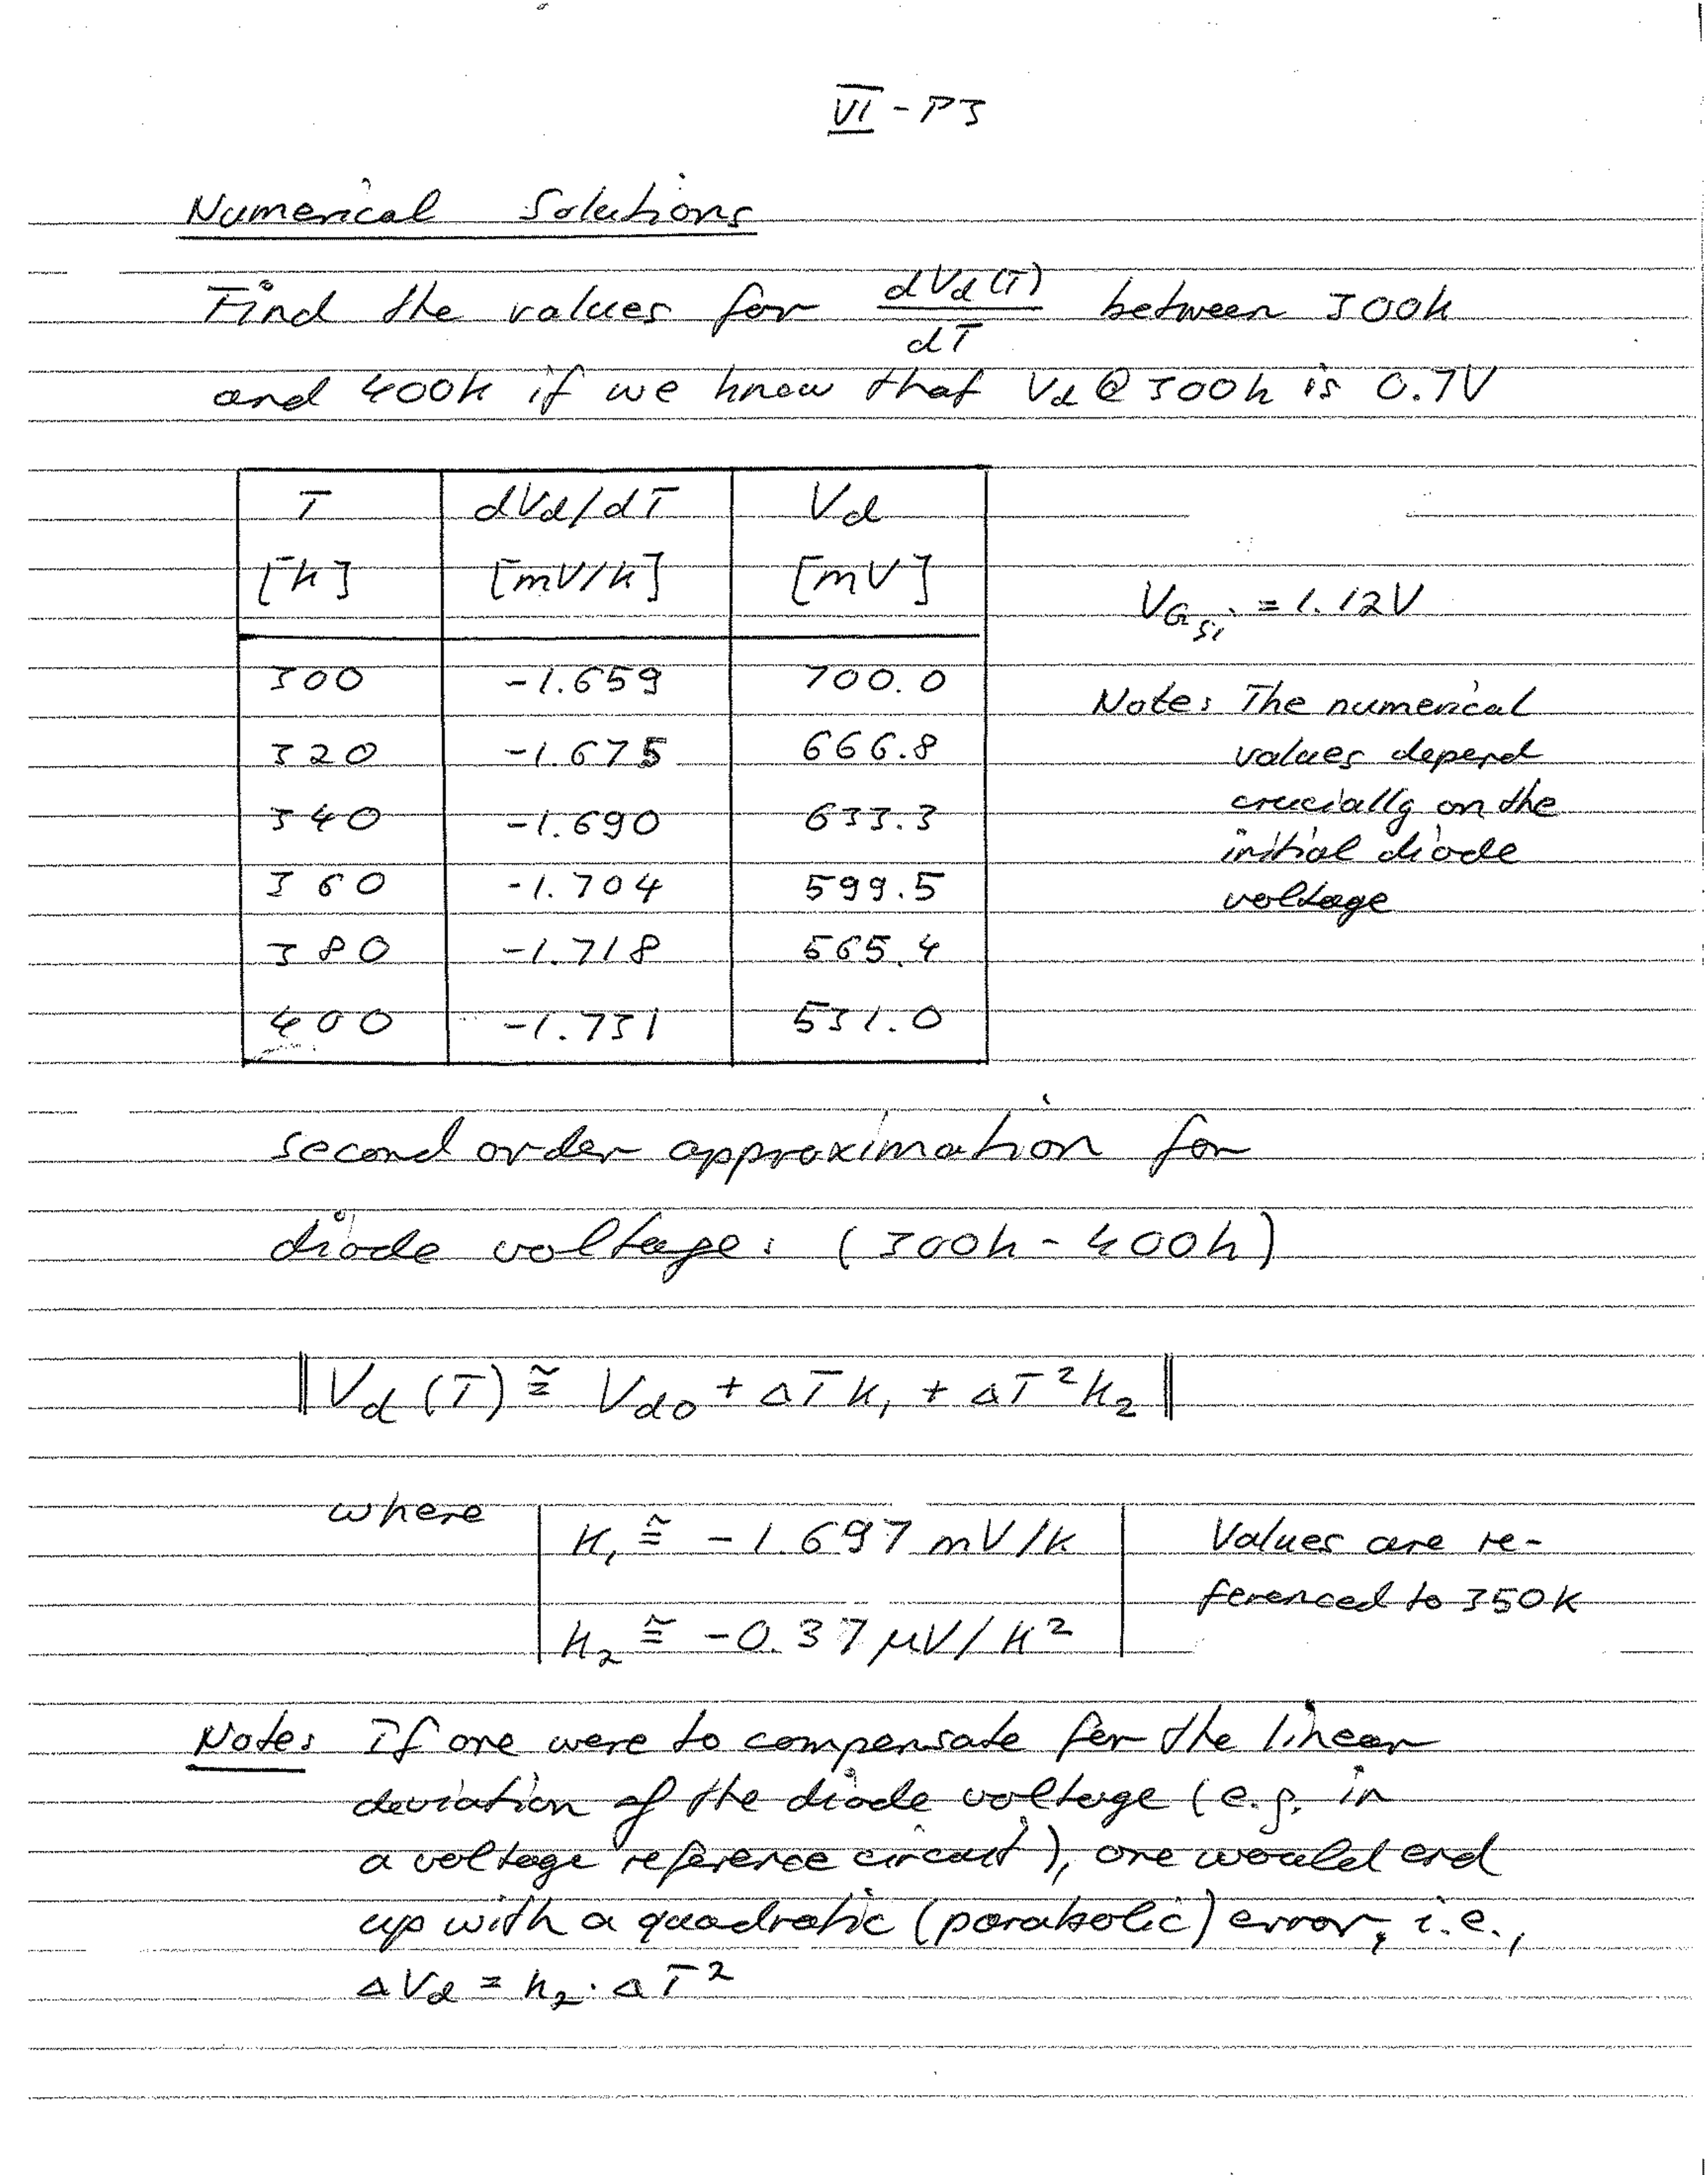 VI - P3
Numerical Solutions
Find the values for dVd(T)/dT between 300k
and 400k if we know that Vd @ 300k is 0.7V
T dVd/dT Vd
[k] [mV/k] [mV]
VG Si = 1.12V
300 -1.659 700.0
320 -1.675 666.8
340 -1.690 633.3
360 -1.704 599.5
380 -1.718 565.4
400 -1.731 531.0
Note: The numerical
values depend
crucially on the
initial diode
voltage
second order approximation for
diode voltage: (300k - 400k)
‖Vd (T) ≅ Vdo + ΔT k₁ + ΔT²k₂‖
where
k₁ ≅ -1.697 mV/k
k₂ ≅ -0.37 μV/k²
Values are re-
ferenced to 350K
Note: If one were to compensate for the linear
deviation of the diode voltage (e.g. in
a voltage reference circuit), one would end
up with a quadratic (parabolic) error, i.e.,
ΔVd = k₂·ΔT²